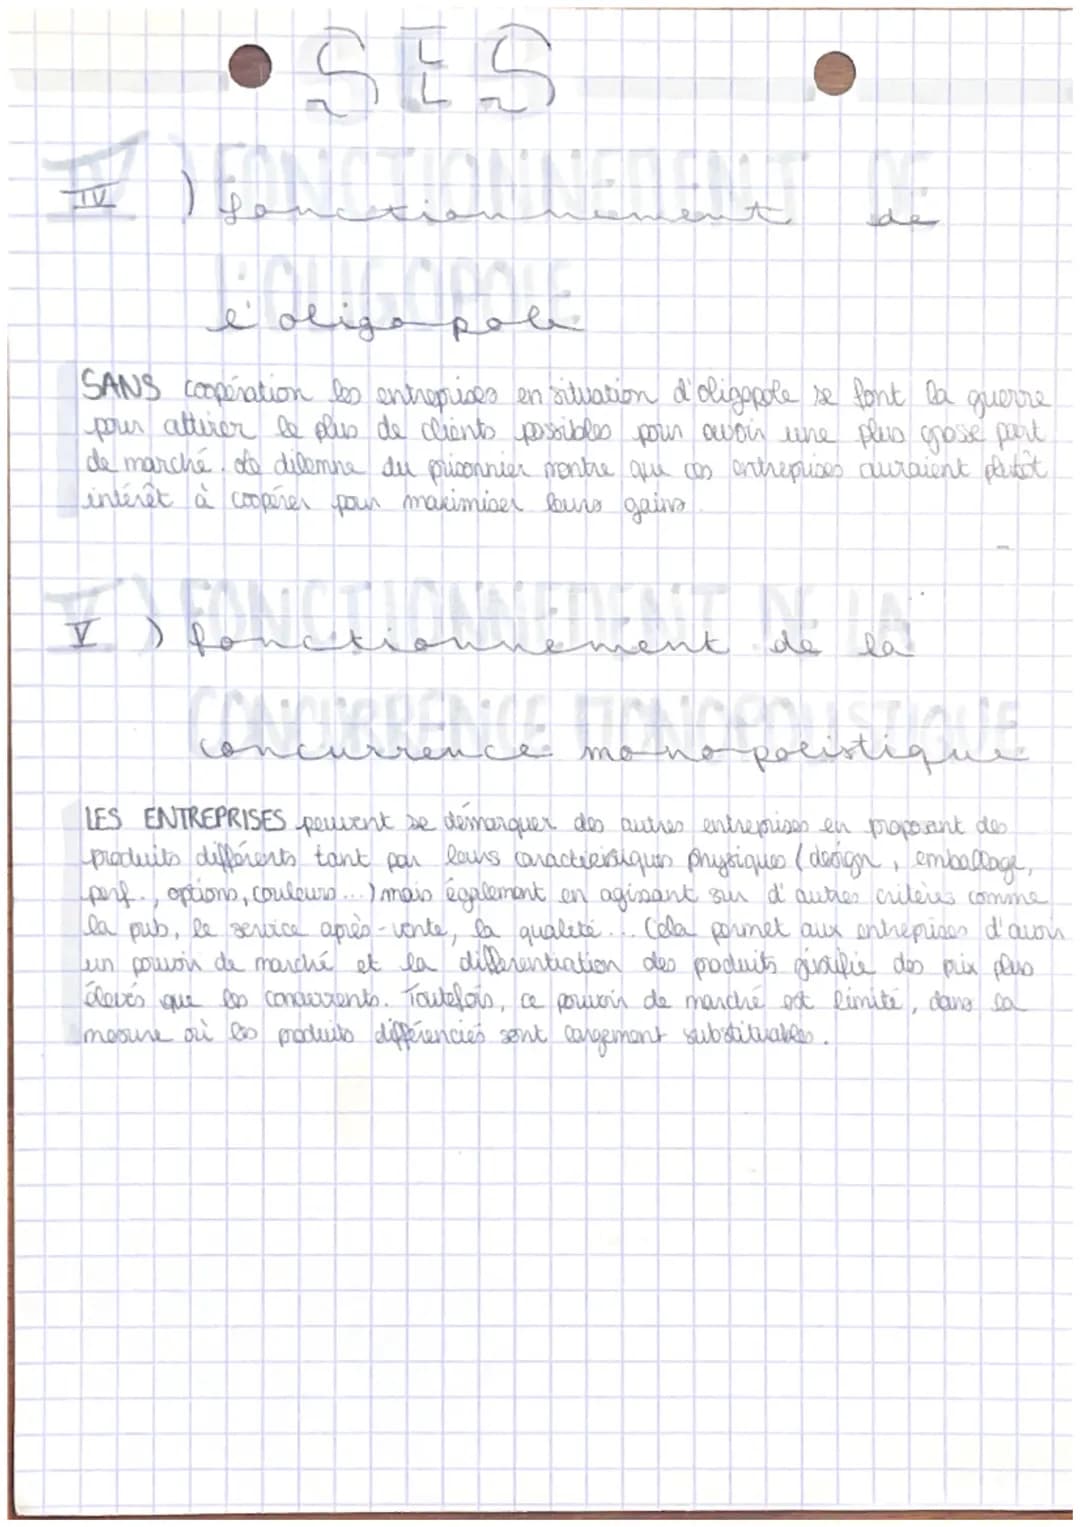 SES
IV) FONCTIONNEMENT DE
IV) fonctionnement de
L'OLIGOPOLE
l'oligopole
SANS coopération les entreprises en situation d'oligopole se font la guerre
pour attirer le plus de clients possibles pour avoir une plus grosse part
de marché. Le dilemne du prisonnier montre que ces entreprises auraient plutôt
intérêt à coopérer pour maximiser leurs gains
V) FONCTIONNEMENT DE LA
V) fonctionnement de la
CONCURRENCE MONOPOLISTIQUE
concurrence monopolistique
LES ENTREPRISES peuvent se démarquer des autres entreprises en proposant des
produits différents tant par leurs caractéristiques physiques (design, emballage,
perf., options, couleurs...) mais également en agissant sur d'autres critères comme
la pub, le service après-vente, la qualité... Cela permet aux entreprises d'avoir
un pouvoir de marché et la différentiation des produits justifie des prix plus
élevés que les concurrents. Toutefois, ce pouvoir de marché est limité, dans la
mesure où les produits différenciés sont largement substituables.